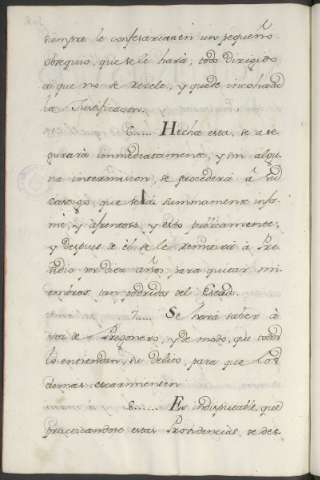 siempre le confesarían en un pequeño
obsequio, que se le hará; todo dirigido
a que no se revele, y quede
la Justificacion.
6..... Hecha esta, se ase
gurará inmediatamente, y sin algu-
na intermision, se procederá à su
castigo, que será summamente infa-
me, y afrentoso, y esto publicamente;
y despues de él se le remitirá à Pre-
sidio por diez años, para quitar mi-
embros tan podridos del Estado.
7..... Se hará saber à
voz de Pregonero, y de modo, que todos
lo entiendan, su Delito, para que los
demas escarmienten.
8...... Es indisputable, que
practicandose estas Providencias, se des-